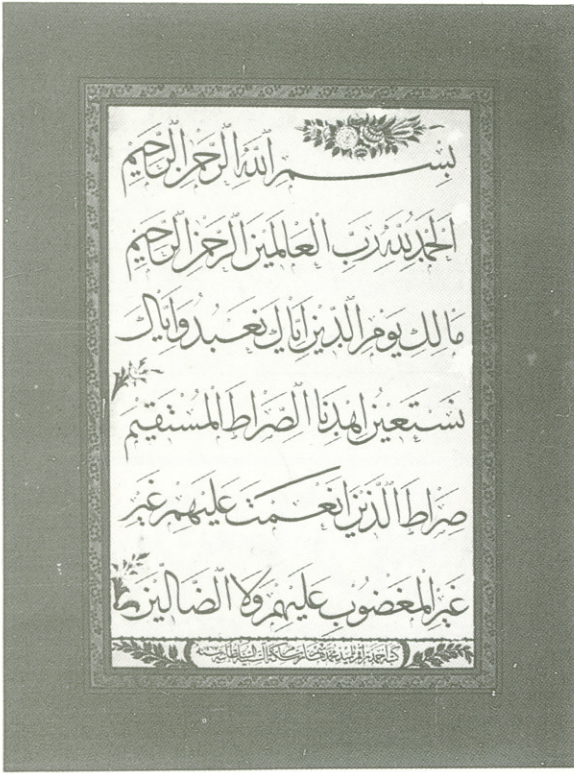 بِسْمِ اللَّهِ الرَّحْمٰنِ الرَّحِيمِ
الْحَمْدُ لِلَّهِ رَبِّ الْعَالَمِينَ الرَّحْمٰنِ الرَّحِيمِ
مَالِكِ يَوْمِ الدِّينِ اِيَّاكَ نَعْبُدُ وَاِيَّاكَ
نَسْتَعِينُ اِهْدِنَا الصِّرَاطَ الْمُسْتَقِيمَ
صِرَاطَ الَّذِينَ اَنْعَمْتَ عَلَيْهِمْ غَيْرِ
غَيْرِ الْمَغْضُوبِ عَلَيْهِمْ وَلَا الضَّالِّينَ